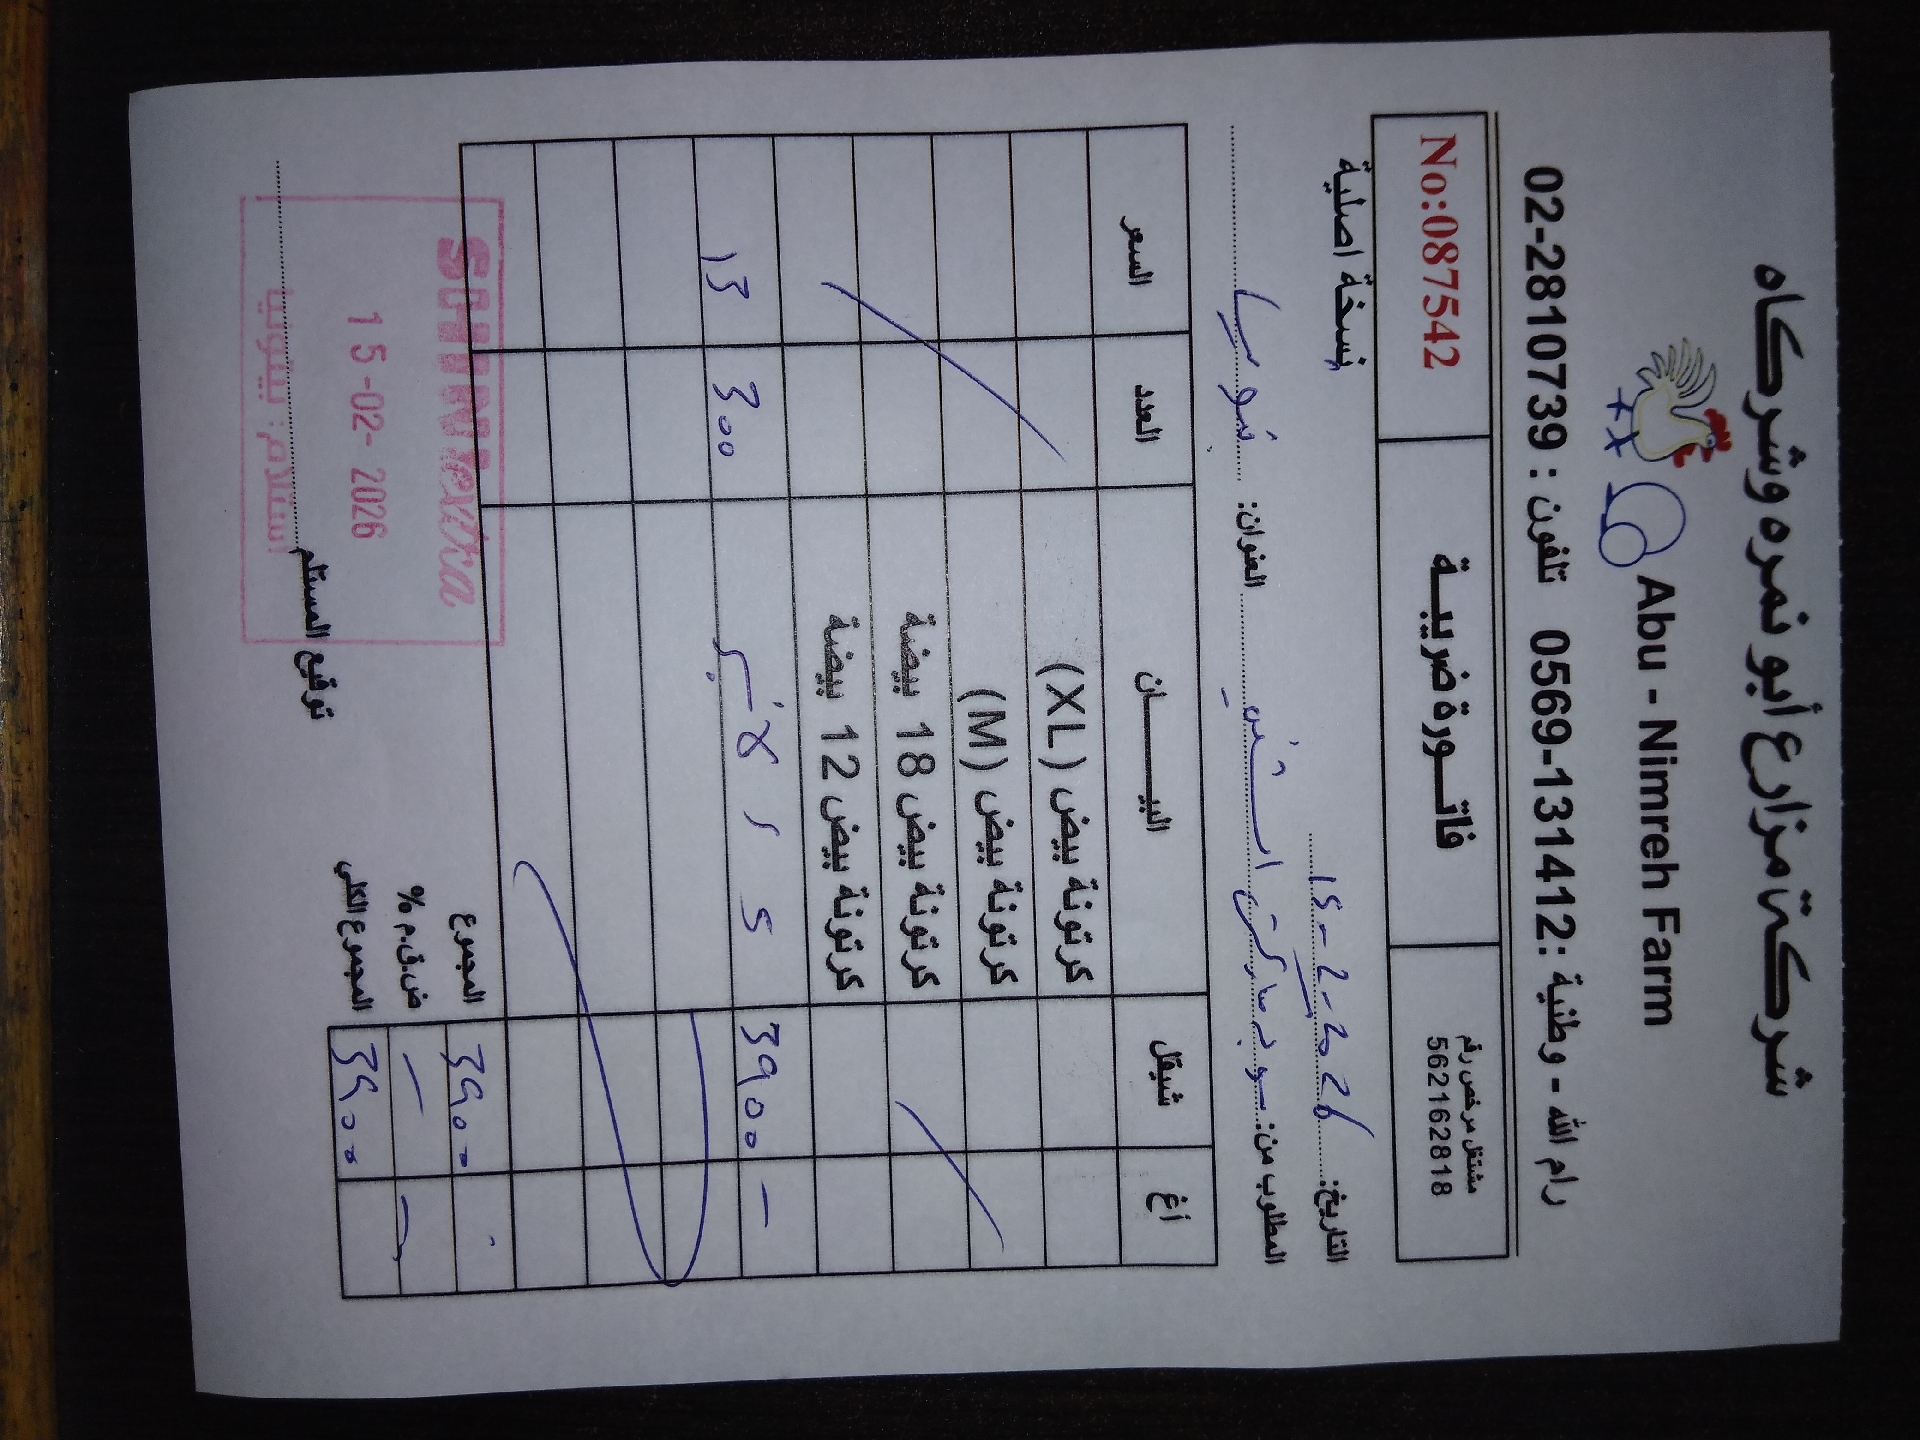 شركة مزارع أبو نمره وشركاه
Abu - Nimreh Farm
رام الله - وطنية : 0569-131412 تلفون : 02-2810739
مشتغل مرخص رقم
562162818
فاتـــورة ضريبيـــة
No:087542
نسخة اصلية
التاريخ: 15-2-2026
المطلوب من: سوبر ماركت العنوان:
أغ شيقل البيـــــان العدد السعر
كرتونة بيض (XL)
كرتونة بيض (M)
كرتونة بيض 18 بيضة
كرتونة بيض 12 بيضة
- 3900 300 13
المجموع 3900
ض.ق.م % -
المجموع الكلي 3900
توقيع المستلم
SHINI extra
15-02-2026
استلام: بيتونيا